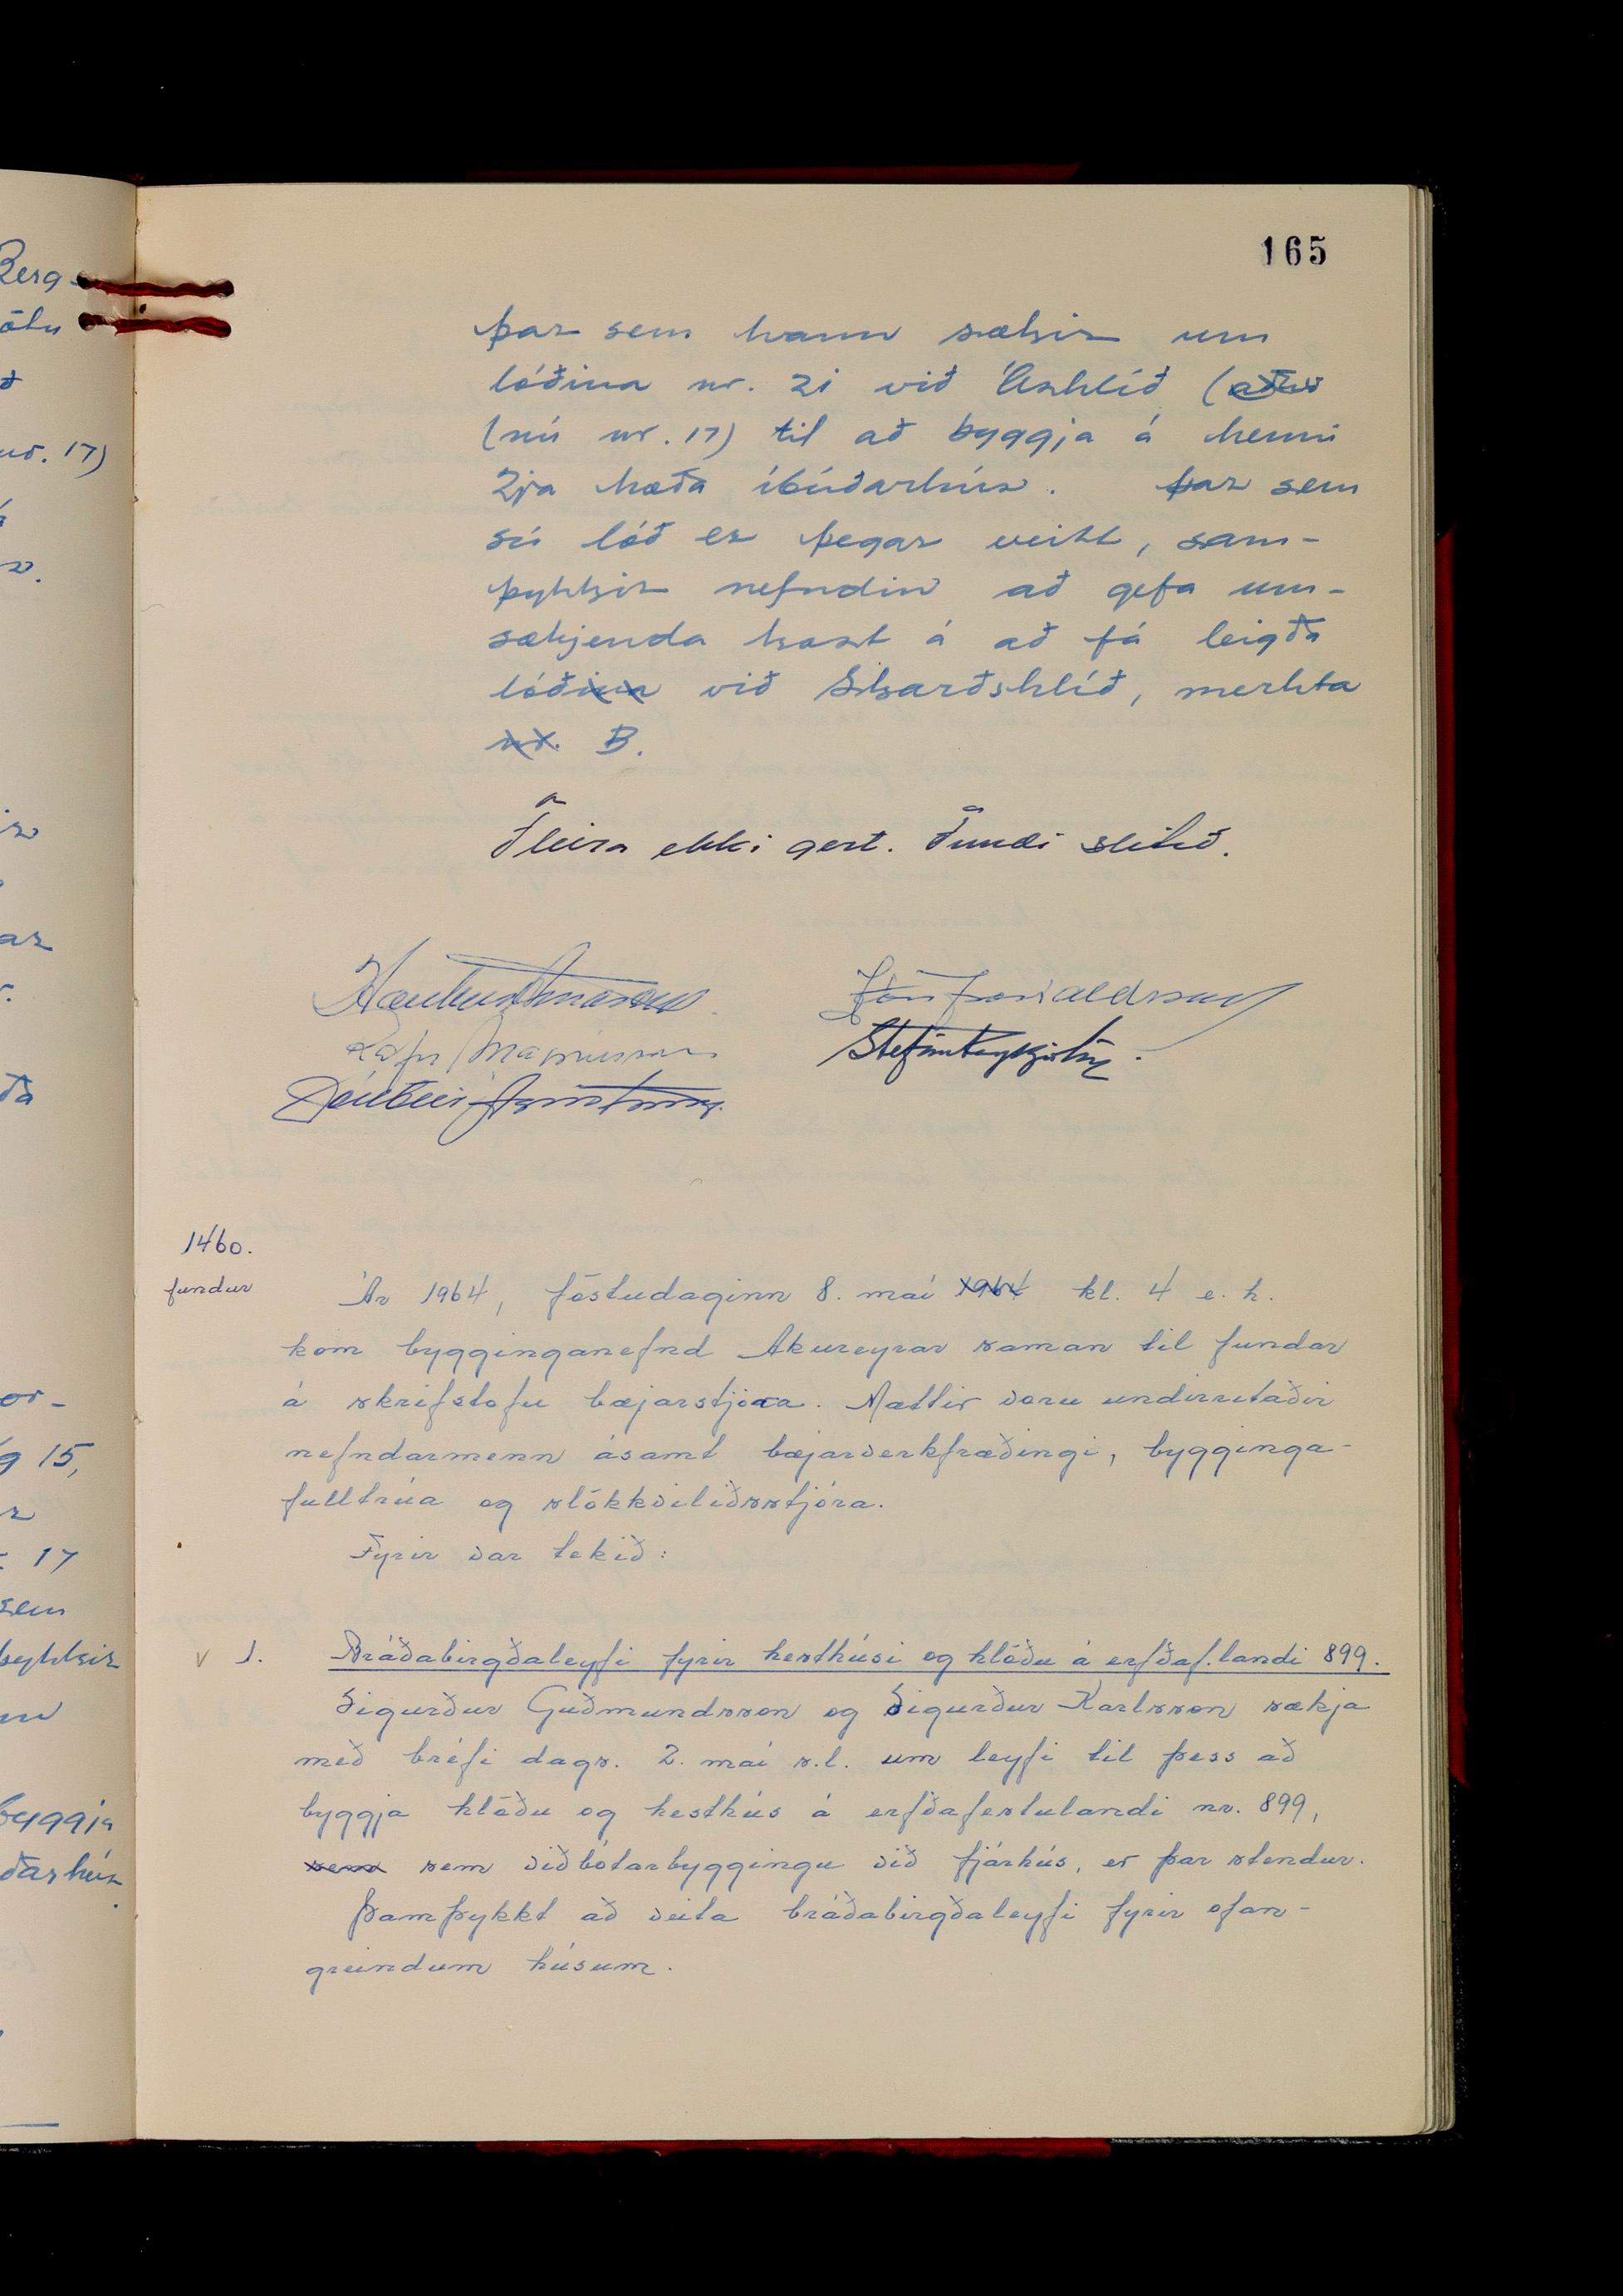 165
þar sem hann sækir um
lóðina nr. 21 við Áshlíð (áður
(nú nr. 17) til að byggja á henni
2ja hæða íbúðarhús. Þar sem
sú lóð er þegar veitt, sam-
þykkir nefndin að gefa um-
sækjenda kost á að fá leigða
lóðina við Skarðshlíð, merkta
nr. B.
Fleira ekki gert. Fundi slitið.
Haukur Árnason Jón Þorvaldsson
Magnússon Stefán Reykjalín
1460.
fundur
Ár 1964, föstudaginn 8. maí 1964 kl. 4 e. h.
kom bygginganefnd Akureyrar saman til fundar
á skrifstofu bæjarstjóra. Mættir voru undirritaðir
nefndarmenn ásamt bæjarverkfræðingi, bygginga-
fulltrúa og slökkviliðsstjóra.
Fyrir var tekið:
v 1. Bráðabirgðaleyfi fyrir hesthúsi og hlöðu á erfðaf.landi 899.
Sigurður Guðmundsson og Sigurður Karlsson sækja
með bréfi dags. 2. maí s.l. um leyfi til þess að
byggja hlöðu og hesthús á erfðafestulandi nr. 899,
sem sem viðbótarbyggingu við fjárhús, er þar stendur.
Samþykkt að veita bráðabirgðaleyfi fyrir ofan-
greindum húsum.